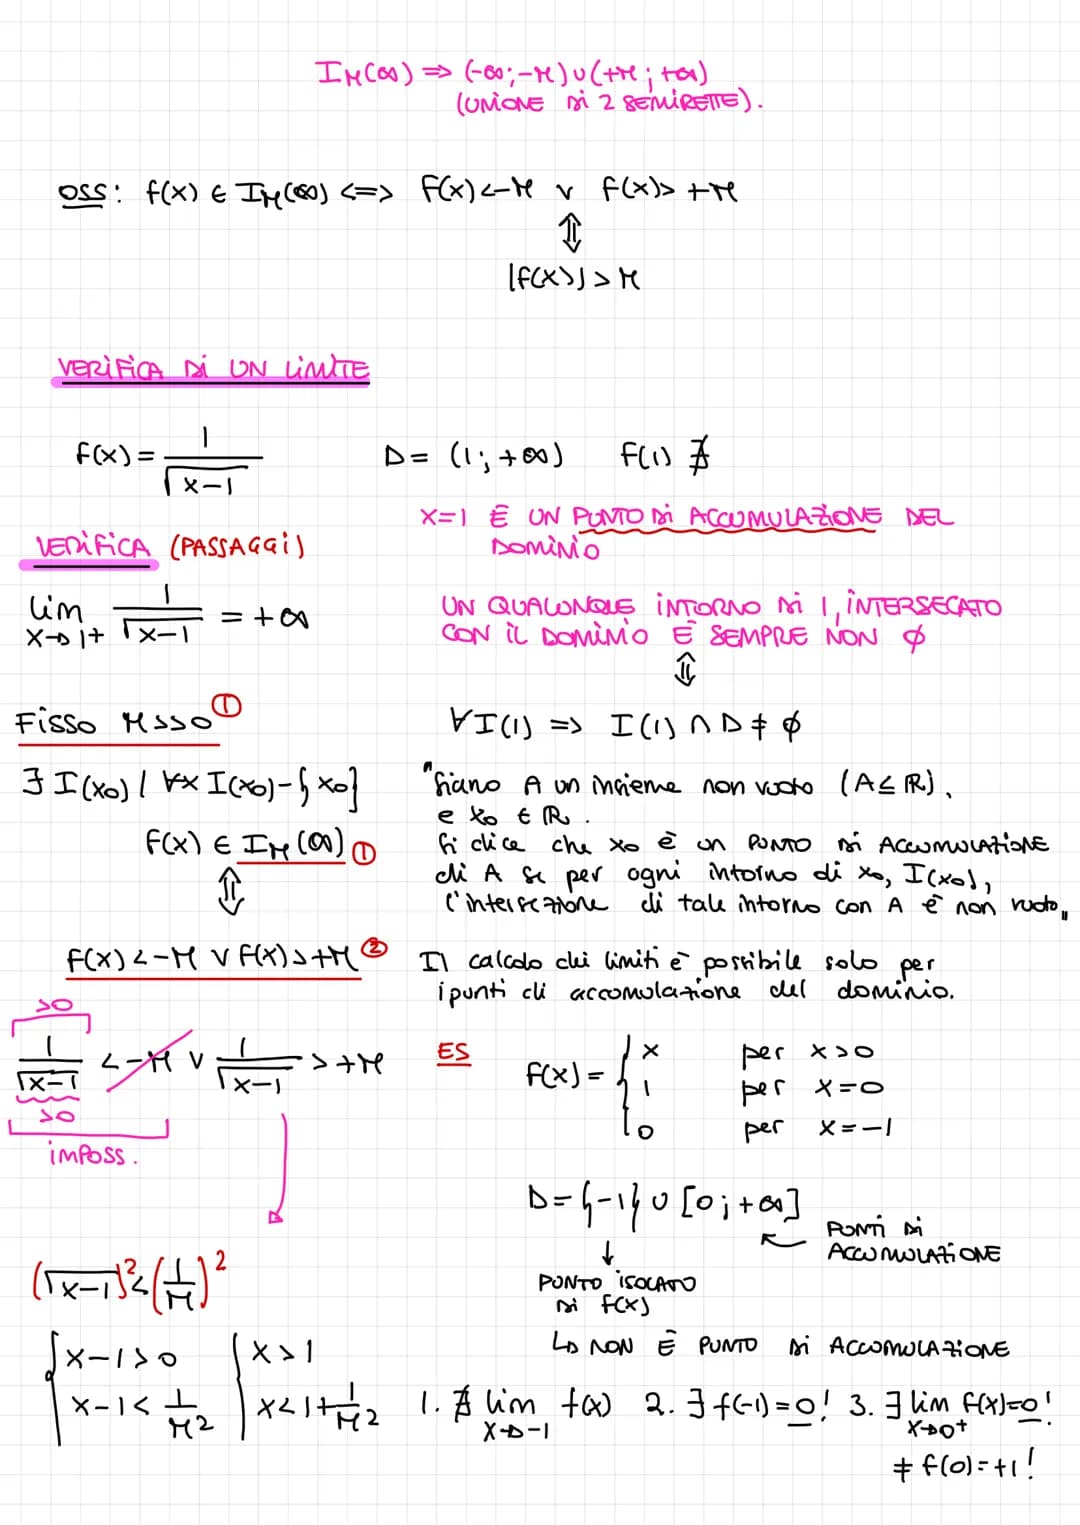 I_M(∞) => (-∞;-M)∪(+M;+∞)
(UNIONE DI 2 SEMIRETTE).
OSS: f(x) ∈ I_M(∞) <=> f(x)<-M ∨ f(x)>+M
⇕
|f(x)|>M
VERIFICA DI UN LIMITE
f(x)= 1/√(x-1)
D= (1;+∞) f(1) ∄
x=1 È UN PUNTO DI ACCUMULAZIONE DEL
DOMINIO
VERIFICA (PASSAGGI)
lim x→1+ 1/√(x-1) = +∞
UN QUALUNQUE INTORNO DI 1, INTERSECATO
CON IL DOMINIO È SEMPRE NON ∅
⇕
∀I(1) => I(1) ∩ D ≠ ∅
Fisso M>>0 ①
∃ I(x0) / ∀x I(x0)-{x0}
f(x) ∈ I_M(∞) ①
⇕
f(x)<-M ∨ f(x)>+M ②
"Siano A un insieme non vuoto (A⊆ℝ),
e x0 ∈ ℝ.
Si dice che x0 è un PUNTO DI ACCUMULAZIONE
di A se per ogni intorno di x0, I(x0),
l'intersezione di tale intorno con A è non vuoto"
Il calcolo di limiti è possibile solo per
i punti di accomulazione del dominio.
>0
1/√(x-1) <-M ∨ 1/√(x-1) >+M
>0
imPoss.
ES
f(x)= { x per x>0
1 per x=0
0 per x=-1
D={-1} ∪ [0;+∞]
PUNTI DI
ACCUMULAZIONE
↓
PUNTO ISOLATO
DI f(x)
↳ NON È PUNTO DI ACCUMULAZIONE
(√(x-1))²<(1/M)²
{ x-1>0 { x>1
x-1< 1/M² x<1+1/M²
1. ∄ lim x→-1 f(x) 2. ∃ f(-1)=0! 3. ∃ lim x→0+ f(x)=0!
≠ f(0)=+1!